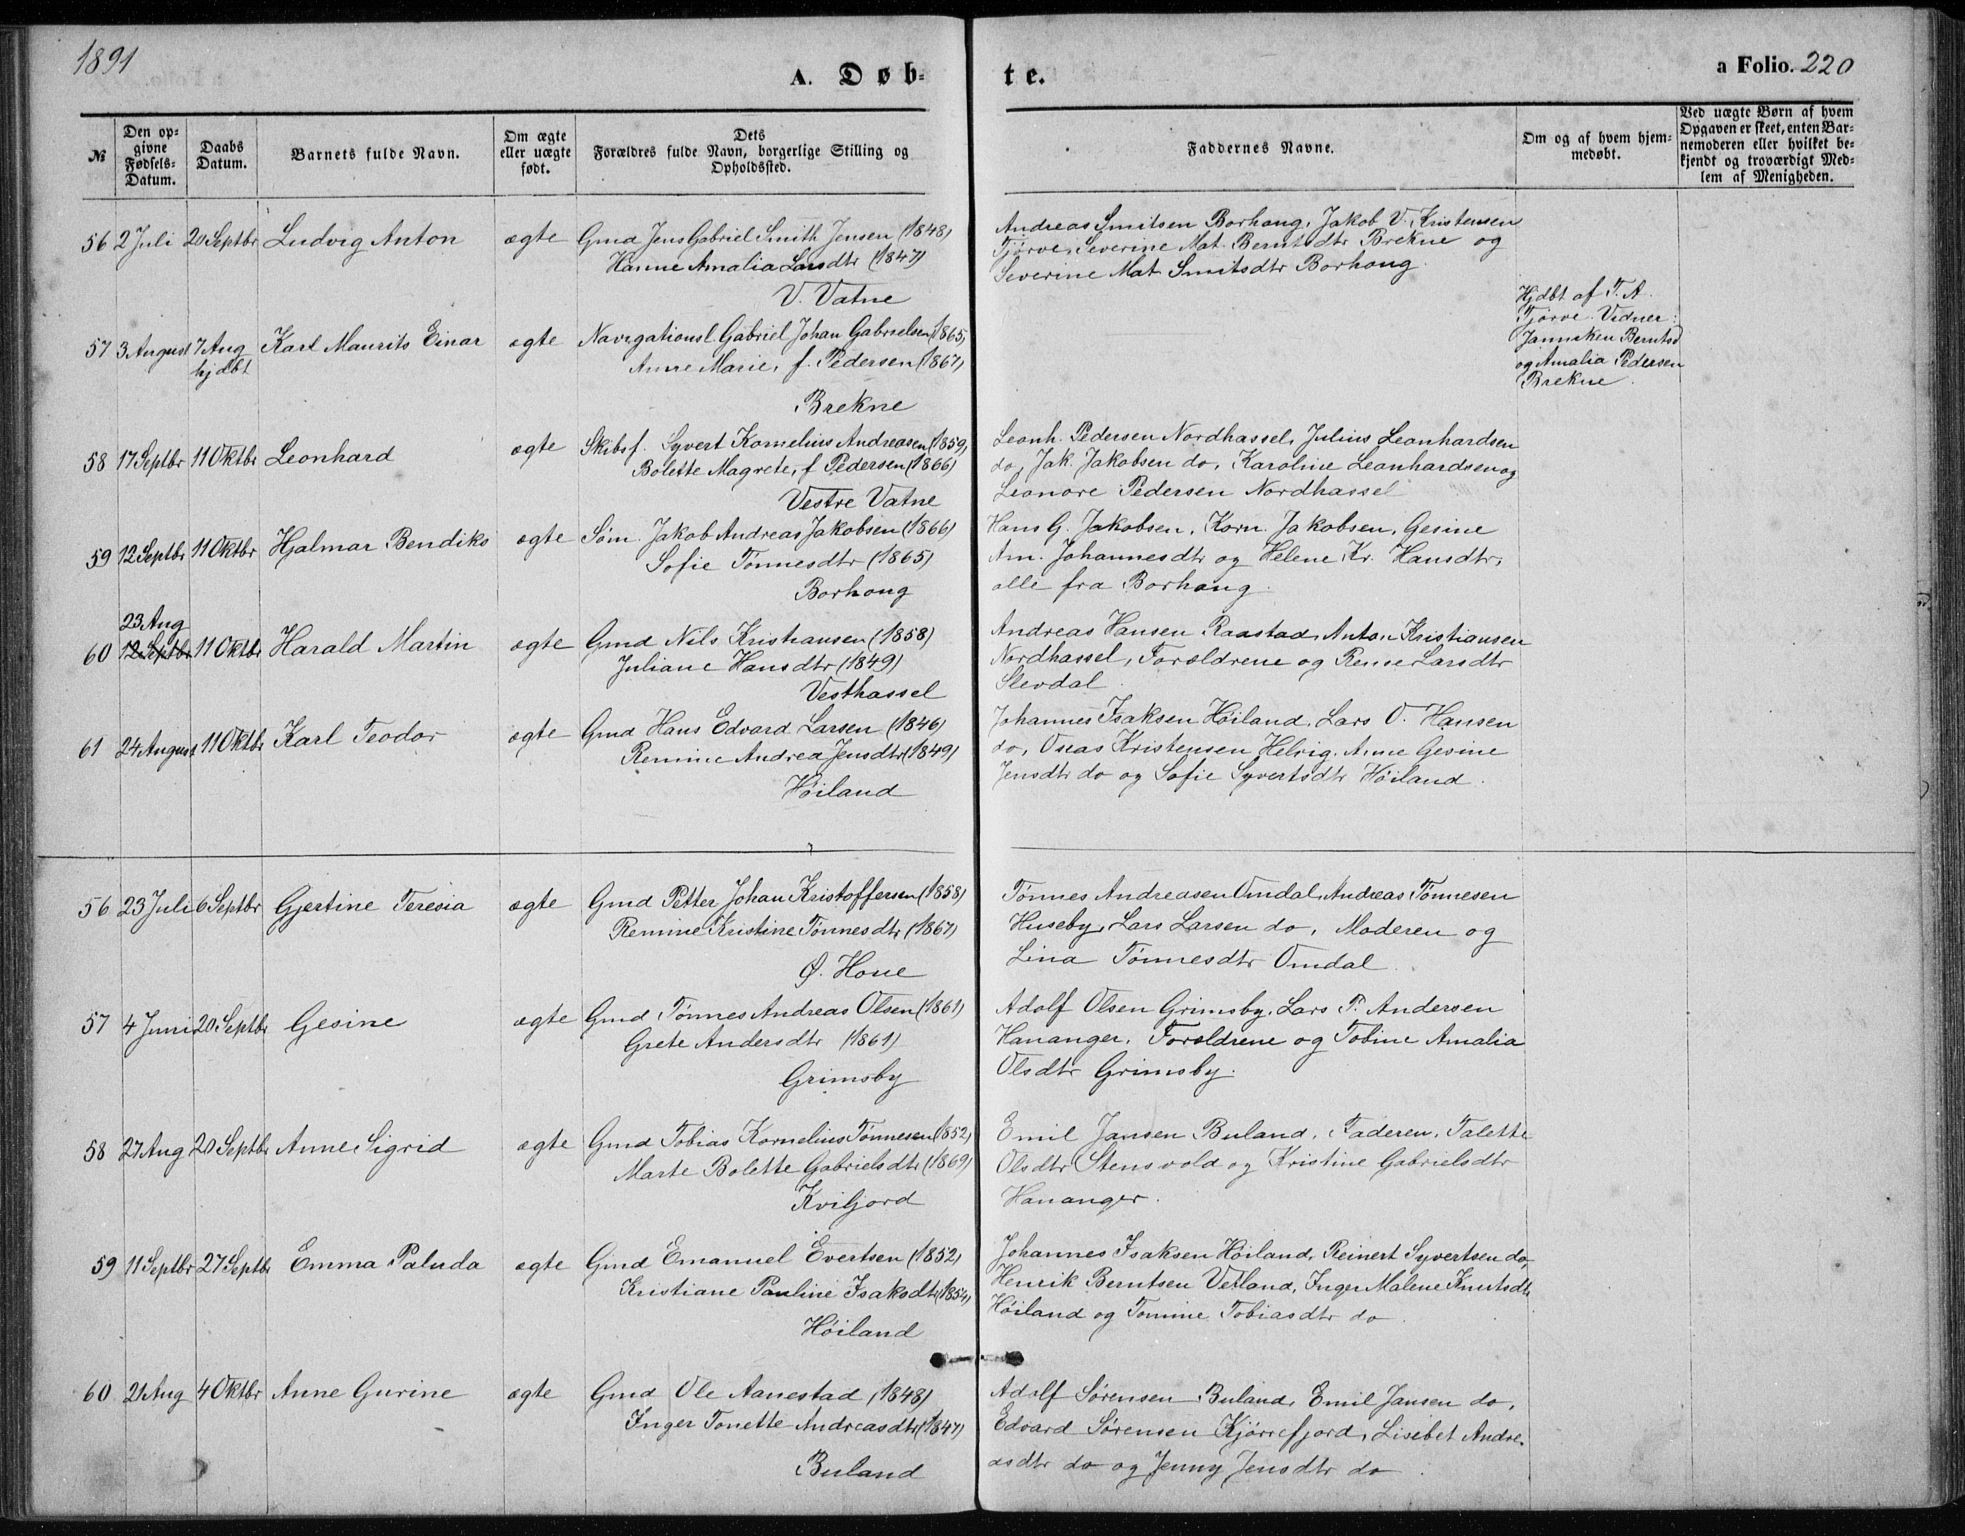 1891
A. Døb-
te.
a Folio. 220
№
Den op-
givne
Fødsels-
Datum.
Daabs
Datum.
Barnets fulde Navn.
Om ægte
eller uægte
født.
Dets
Forældres fulde Navn, borgerlige Stilling og
Opholdssted.
Faddernes Navne.
Om og af hvem hjem-
medøbt.
Ved uægte Børn af hvem
Opgaven er skeet, enten Bar-
nemoderen eller hvilket be-
kjendt og troværdigt Med-
lem af Menigheden.
56 2 Juli 20 Septbr Ludvig Anton ægte Gmd Jens Gabriel Smith Jensen (1848)
Hanne Amalia Larsdtr (1847)
V. Vatne
Andreas Smitsen Borhaug, Jakob V. Kristensen
Tjørve, Severine Mat. Berntsdtr Brekne og
Severine Mat. Smitsdtr Borhaug.
57 3 August 7 Aug Karl Maurits Einar ægte Navigationsl. Gabriel Johan Gabrielsen (1865)
hjdbt
Anne Marie, f. Pedersen (1867)
Brekne
Hjdbt af T. A.
Tjørve. Vidner:
Janniken Berntsd
og Amalia Pedersen
Brekne.
58 17 Septbr 11 Oktbr Leonhard ægte Skibsf. Syvert Kornelius Andreasen (1859)
Bolette Magrete, f. Pedersen (1866)
Vestre Vatne
Leonh. Pedersen Nordhassel, Julius Leonhardsen
do, Jak. Jakobsen do, Karoline Leonhardsen og
Leonore Pedersen Nordhassel
59 12 Septbr 11 Oktbr Hjalmar Bendiks ægte Søm. Jakob Andreas Jakobsen (1866)
Sofie Tønnesdtr (1865)
Borhoug
Hans G. Jakobsen, Korn. Jakobsen, Gesine
Am. Johannesdtr og Helene Kr. Hansdtr,
alle fra Borhaug.
23 Aug
60 12 Septbr 11 Oktbr Harald Martin ægte Gmd Nils Kristiansen (1858)
Juliane Hansdtr (1849)
Vesthassel
Andreas Hansen Raastad, Anton Kristiansen
Nordhassel, Forældrene og Larsdtr
Slevdal
61 24 August 11 Oktbr Karl Teodor ægte Gmd Hans Edvard Larsen (1846)
Remine Andrea Jensdtr (1849)
Høiland
Johannes Isaksen Høiland, Lars O. Hansen
do, Oseas Kristensen Helvig, Anne Gesine
Jensdtr do og Sofie Syvertsdtr Høiland.
56 23 Juli 6 Septbr Gjertine Teresia ægte Gmd Petter Johan Kristoffersen (1858)
Remine Kristine Tønnesdtr (1867)
Ø. Houe
Tønnes Andreasen Omdal, Andreas Tønnesen
Huseby, Lars Larsen do, Moderen og
Lina Tønnesdtr Omdal.
57 4 Juni 20 Septbr Gesine ægte Gmd Tønnes Andreas Olsen (1861)
Grete Andersdtr (1861)
Grimsby
Adolf Olsen Grimsby, Lars P. Andersen
Hananger, Forældrene og Tobine Amalia
Olsdtr Grimsby.
58 27 Aug 20 Septbr Anne Sigrid ægte Gmd Tobias Kornelius Tønnesen (1852)
Marte Bolette Gabrielsdtr (1869)
Kviljord
Emil Jansen Buland, Faderen, Talette
Olsdtr Stensvold og Kristine Gabrielsdtr
Hananger.
59 11 Septbr 27 Septbr Emma Paluda ægte Gmd Emanuel Evertsen (1852)
Kristiane Pauline Isaksdtr (1854)
Høiland
Johannes Isaksen Høiland, Reinert Syvertsen do,
Henrik Berntsen Vetland, Inger Malene Knutsdtr
Høiland og Tomine Tobiasdtr do.
60 21 Aug 4 Oktbr Anne Gurine ægte Gmd Ole Aanestad (1848)
Inger Tonette Andreasdtr (1847)
Buland
Adolf Sørensen Buland, Emil Jansen do,
Edvard Sørensen Kjørrefjord, Lisebet Andre-
asdtr do og Jenny Jensdtr do.